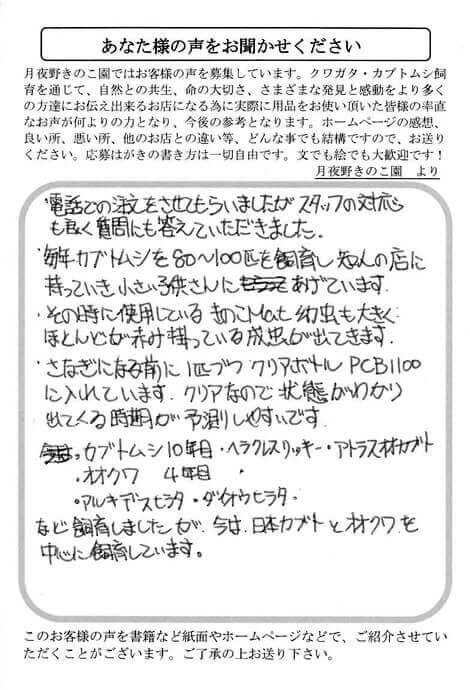 あなた様の声をお聞かせください
月夜野きのこ園ではお客様の声を募集しています。クワガタ・カブトムシ飼
育を通じて、自然との共生、命の大切さ、さまざまな発見と感動をより多く
の方達にお伝え出来るお店になる為に実際に用品をお使い頂いた皆様の率直
なお声が何よりの力となり、今後の参考となります。ホームページの感想、
良い所、悪い所、他のお店との違い等、どんな事でも結構ですので、お送り
ください。応募はがきの書き方は一切自由です。文でも絵でも大歓迎です！
月夜野きのこ園　より
・電話での注文をさせてもらいましたが スタッフの対応
も良く質問にも答えていただきました。
・毎年カブトムシを80〜100匹を飼育し 知人の店に
持っていき小さい子供さんにあげています。
・その時に使用している きのこMat 幼虫も大きく
ほとんどが赤み掛っている成虫が出てきます。
・さなぎになる前に 1匹づつ クリアボトル PCB1100
に入れています。クリアなので 状態がわかり
出てくる時期が予測しやすいです。
・カブトムシ10年目・ヘラクレスリッキー・アトラスオオカブト
・オオクワ　4年目　・
・アルキデスヒラタ・ダイオウヒラタ・
など飼育しましたが、今は、日本カブトとオオクワを
中心に飼育しています。
このお客様の声を書籍など紙面やホームページなどで、ご紹介させてい
ただくことがございます。ご了承の上お送り下さい。